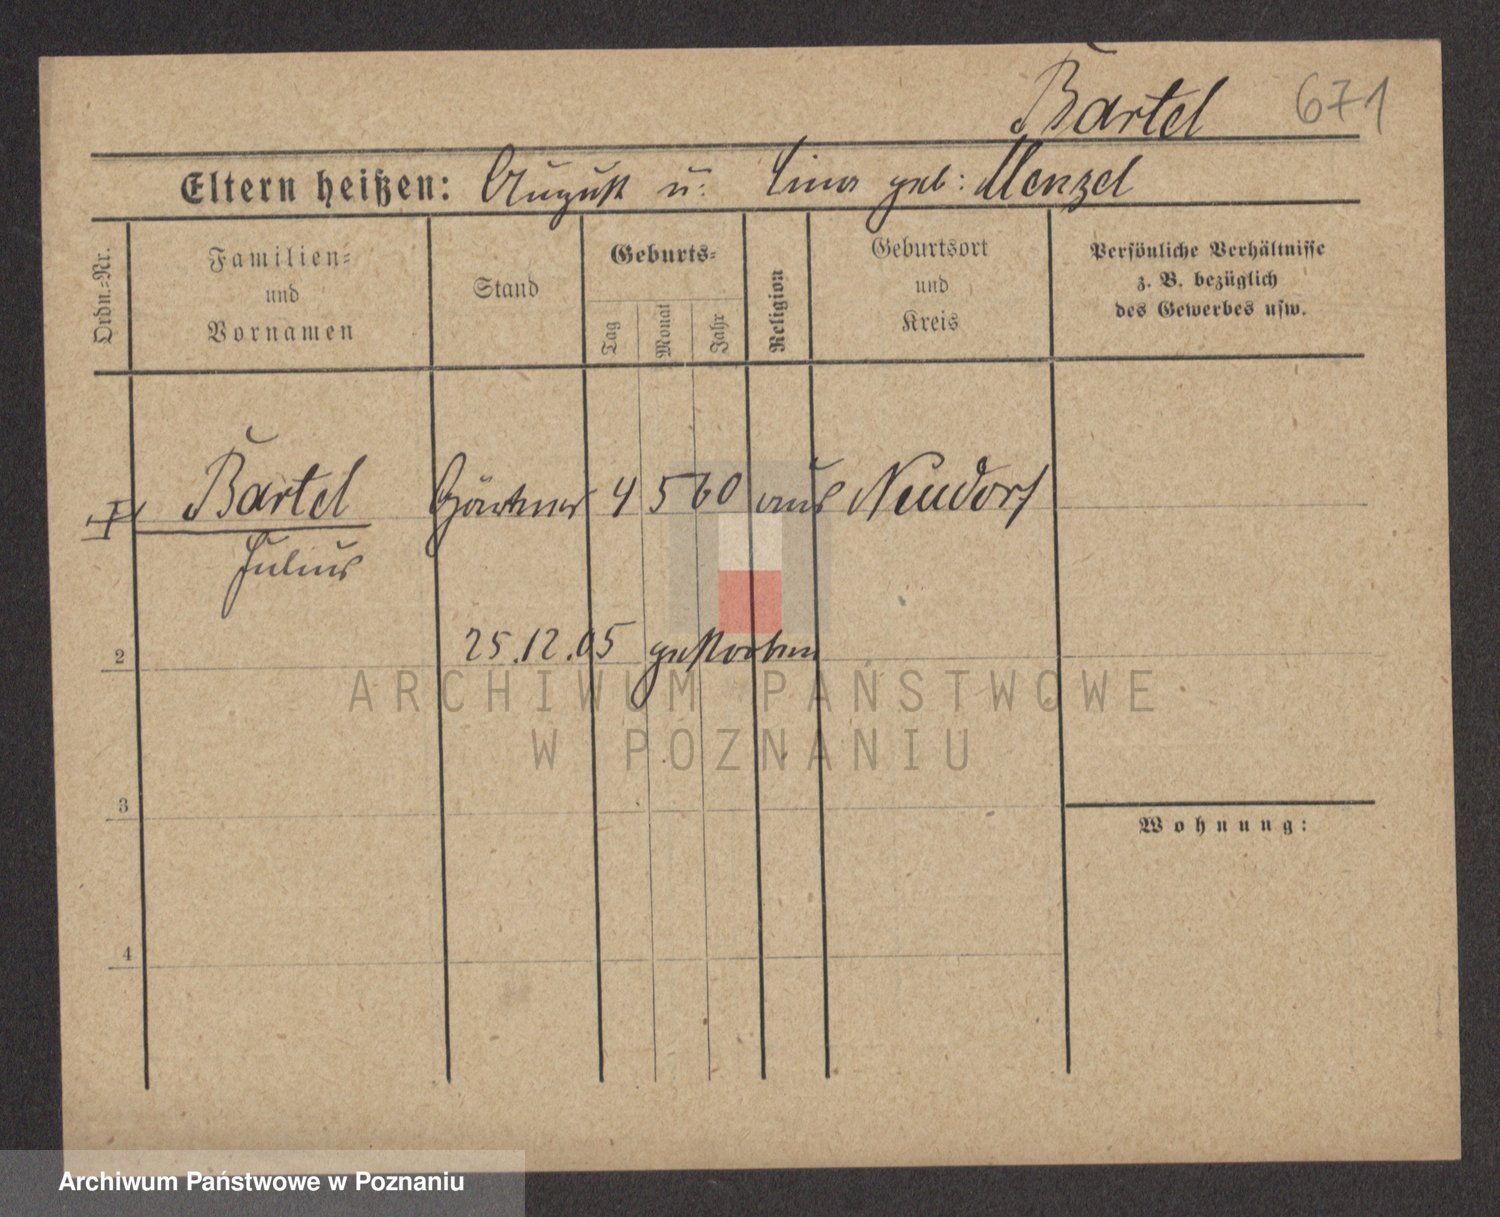 Bartel 671
Eltern heißen: August u. Lina geb: Menzel
Ordn.-Nr.
Familien-
und
Vornamen
Stand
Geburts-
Tag
Monat
Jahr
Religion
Geburtsort
und
Kreis
Persönliche Verhältnisse
z. B. bezüglich
des Gewerbes usw.
I Bartel Gärtner 4 5 60 aus Neudorf
Julius
25.12.05 gestorben
2
ARCHIWUM PAŃSTWOWE
W POZNANIU
3
Wohnung:
4
Archiwum Państwowe w Poznaniu